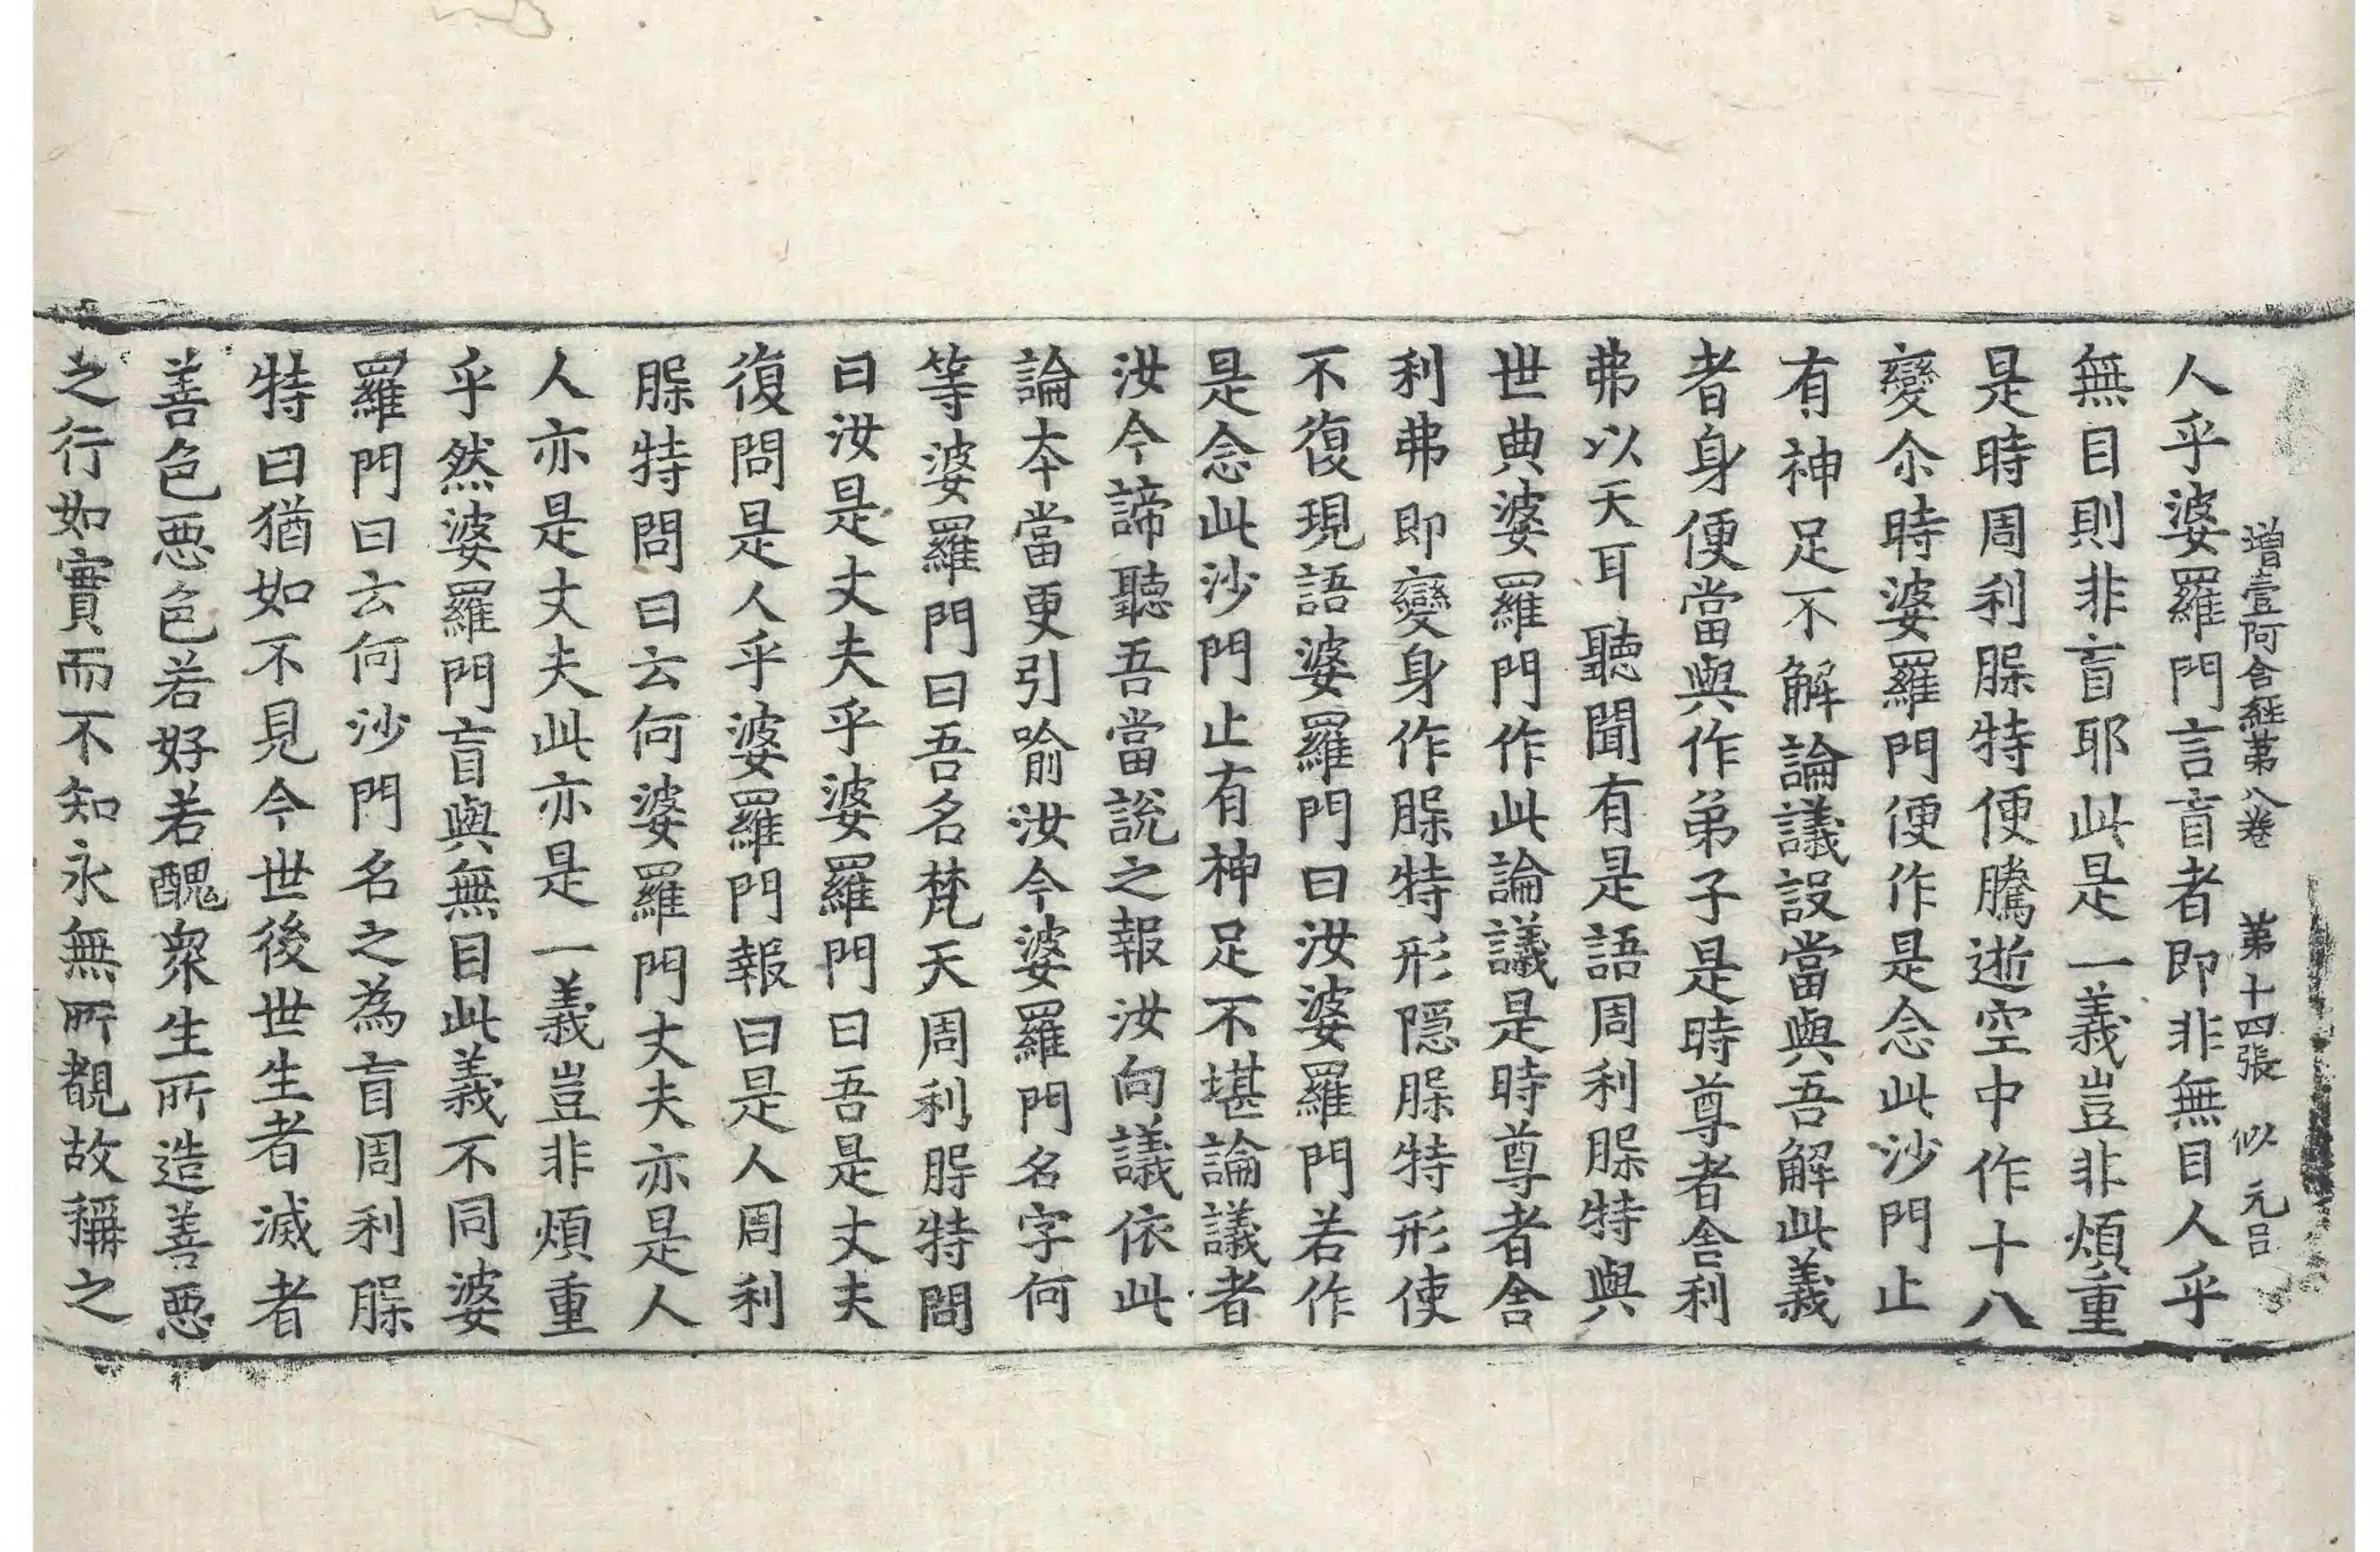 增壹阿含経苐八卷 苐十四張 似 元呂
人乎婆羅門言盲者即非無目人乎
無目則非盲耶此是一義豈非煩重
是時周利𦟛特便騰逝空中作十八
變尒時婆羅門便作是念此沙門止
有神足不解論議設當與吾解此義
者身便當與作弟子是時尊者舎利
弗以天耳聽聞有是語周利𦟛特與
世典婆羅門作此論議是時尊者舎
利弗即變身作𦟛特形隱𦟛特形使
不復現語婆羅門曰汝婆羅門若作
是念此沙門止有神足不堪論議者
汝今諦聽吾當說之報汝向議依此
論夲當更引喻汝今婆羅門名字何
等婆羅門曰吾名梵天周利𦟛特問
曰汝是丈夫乎婆羅門曰吾是丈夫
復問是人乎婆羅門報曰是人周利
𦟛特問曰云何婆羅門丈夫亦是人
人亦是丈夫此亦是一義豈非煩重
乎然婆羅門盲與無目此義不同婆
羅門曰云何沙門名之為盲周利𦟛
特曰猶如不見今世後世生者滅者
善色惡色若好若醜衆生所造善惡
之行如實而不知永無所覩故稱之